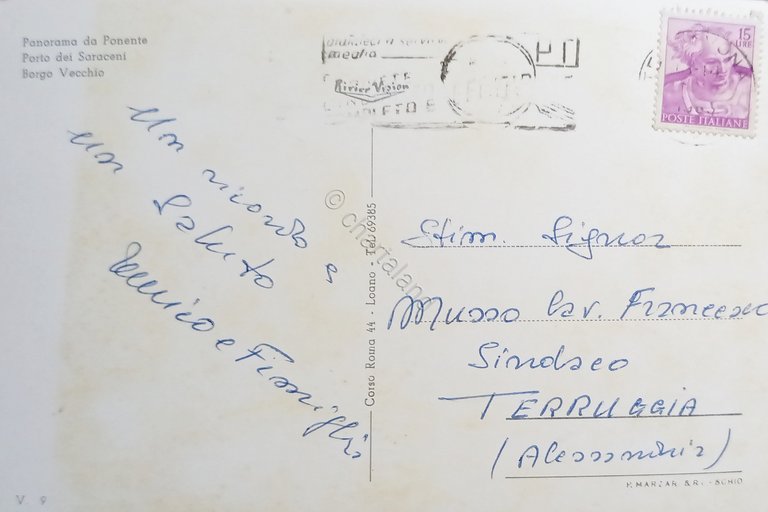 Panorama da Ponente
Porto dei Saraceni
Borgo Vecchio
Un ricordo e
un saluto
e Famiglia
Rivier Vision
15
LIRE
POSTE ITALIANE
Corso Roma 44 - Loano - Tel. 69385
© chartaland
Stim. Signor
Musso Cav. Francesco
Sindaco
TERRUGGIA
(Alessandria)
P. MARZAR S.R. - SCHIO
V. 9